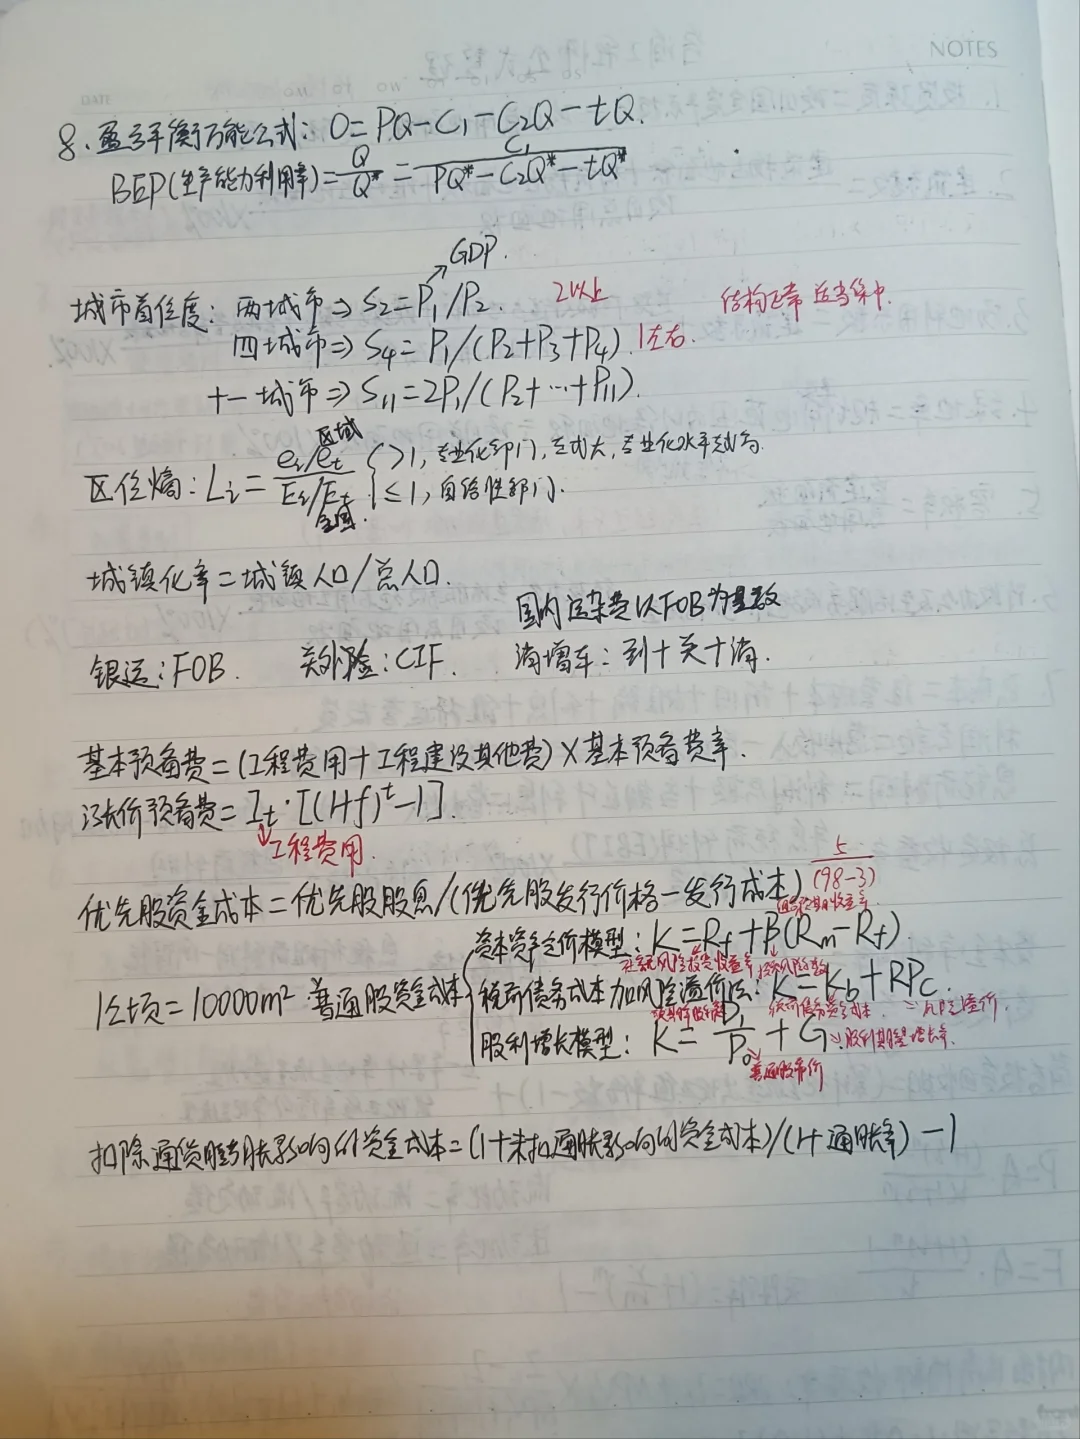 NOTES
DATE
8、盈亏平衡万能公式：0=PQ-C₁-C₂Q-tQ.
BEP(生产能力利用率)=Q/Q*=C₁/(PQ*-C₂Q*-tQ*)
GDP.
城市首位度：两城市⇒S₂=P₁/P₂. 2以上 结构正常 适当集中.
四城市⇒S₄=P₁/(P₂+P₃+P₄). 1左右.
十一城市⇒S₁₁=2P₁/(P₂+…+P₁₁).
区域
区位熵：Lᵢ=(eᵢ/eₜ)/(Eᵢ/Eₜ) { >1，专业化部门，Lᵢ越大，专业化水平越高
≤1，自给性部门.
全国.
城镇化率=城镇人口/总人口.
国内运杂费以FOB为基数
银运：FOB. 关外险：CIF. 消增车：到+关+消.
基本预备费=(工程费用+工程建设其他费)×基本预备费率.
涨价预备费=Iₜ·[(1+f)ᵗ-1].
工程费用.
优先股资金成本=优先股股息/(优先股发行价格-发行成本) 5/(98-3)
资本资产定价模型：K=Rf+β(Rm-Rf).
社会无风险投资收益率 投资风险系数
1公顷=10000m². 普通股资金成本 税前债务成本加风险溢价法：K=Kb+RPc.
税前债务资金成本. 风险溢价.
股利增长模型：K=D₁/P₀+G 股利期望增长率.
普通股市价
扣除通货膨胀影响的资金成本=(1+未扣通胀影响的资金成本)/(1+通胀率)-1